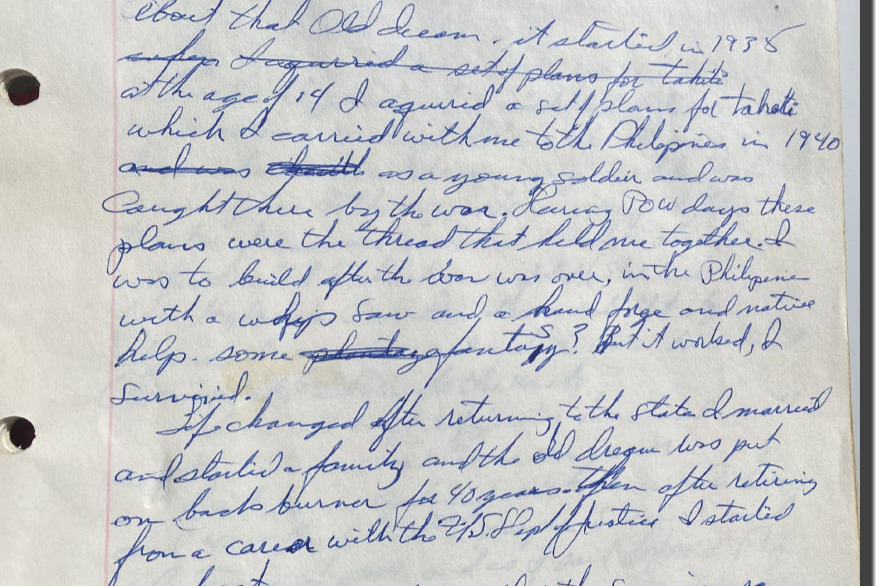 about that Old dream. it started in 1935
when I aquired a set of plans for tahiti
at the age of 14 I aquired a set of plans for tahiti
which I carried with me to the Philipines in 1940
and was as a young soldier and was
Caught there by the war. During POW days these
plans were the thread that held me together. I
was to build after the war was over, in the Philipine
with a whip saw and a hand forge and native
help. some fantasy? But it worked, I
Survived.
Life changed after returning to the state I married
and started a family and the old dream was put
on back burner for 40 years. Then after retiring
from a career with the U.S. Dept of Justice I started